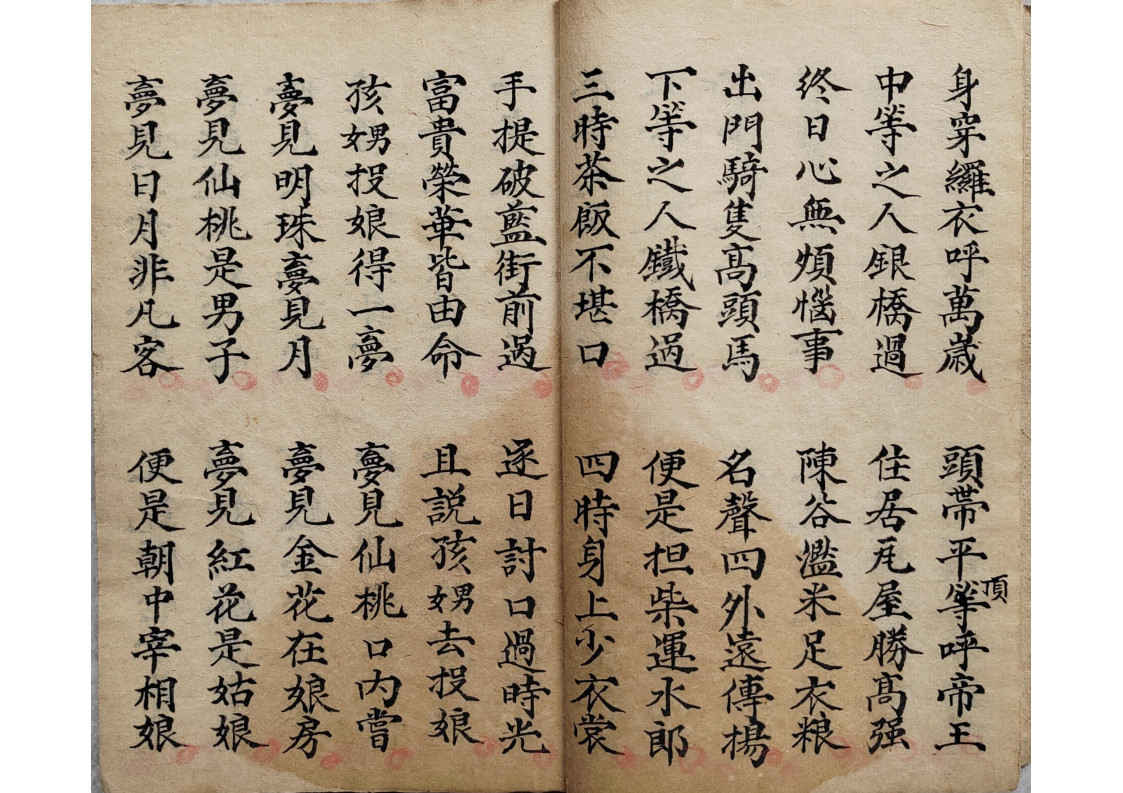 身穿羅衣呼萬歲
頭帶平等呼帝王
頂
中等之人銀橋過
住居瓦屋勝高强
終日心無煩惱事
陳谷濫米足衣粮
出門騎隻高頭馬
名聲四外遠傳揚
下等之人鐵橋過
便是担柴運水郎
三時茶飯不堪口
四時身上少衣裳
手提破藍街前過
逐日討口過時光
富貴榮華皆由命
且説孩娚去投娘
孩娚投娘得一夢
夢見仙桃口内嘗
夢見明珠夢見月
夢見金花在娘房
夢見仙桃是男子
夢見紅花是姑娘
夢見日月非凡客
便是朝中宰相娘